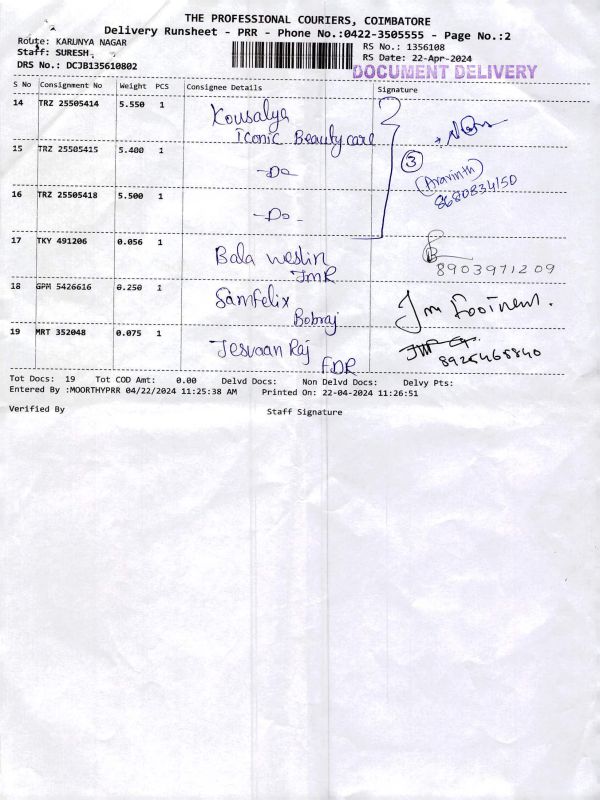 THE PROFESSIONAL COURIERS, COIMBATORE
Delivery Runsheet - PRR - Phone No.:0422-3505555 - Page No.:2
Route: KARUNYA NAGAR
RS No.: 1356108
Staff: SURESH
RS Date: 22-Apr-2024
DRS No.: DCJB135610802
DOCUMENT DELIVERY
S No Consignment No Weight PCS Consignee Details Signature
14 TRZ 25505414 5.550 1 Kousalya
Iconic Beauty care
15 TRZ 25505415 5.400 1 -Do-
3
(Aravinth)
8680834150
16 TRZ 25505418 5.500 1 -Do-
17 TKY 491206 0.056 1 Bala weslin
JMR
8903971209
18 GPM 5426616 0.250 1 Samfelix
Bobraj
19 MRT 352048 0.075 1 Jesvaan Raj
FDR
8925465840
Tot Docs: 19 Tot COD Amt: 0.00 Delvd Docs: Non Delvd Docs: Delvy Pts:
Entered By :MOORTHYPRR 04/22/2024 11:25:38 AM Printed On: 22-04-2024 11:26:51
Verified By Staff Signature